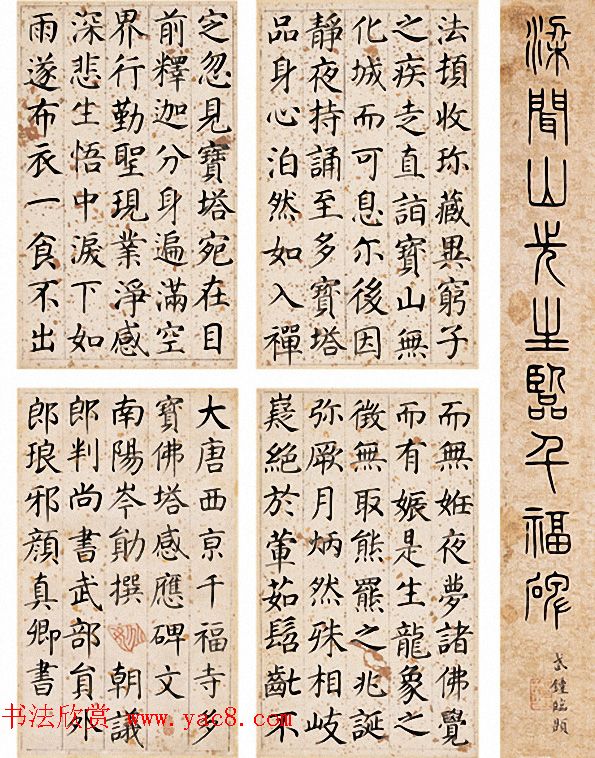 梁聞山先生臨千福碑
法頓收珎藏異窮子
之疾走直詣寶山無
化城而可息尒後因
靜夜持誦至多寶塔
品身心泊然如入禪
定忽見寶塔宛在目
前釋迦分身遍滿空
界行勤聖現業淨感
深悲生悟中淚下如
雨遂布衣一食不出
而無姙夜夢諸佛覺
而有娠是生龍象之
徵無取熊羆之兆誕
弥厥月炳然殊相岐
嶷絕於葷茹髫齔不
大唐西亰千福寺多
寶佛塔感應碑文
南陽岑勛撰 朝議
郎判尚書武部員外
郎琅邪顏真卿書
书法欣赏 www.yac8.com